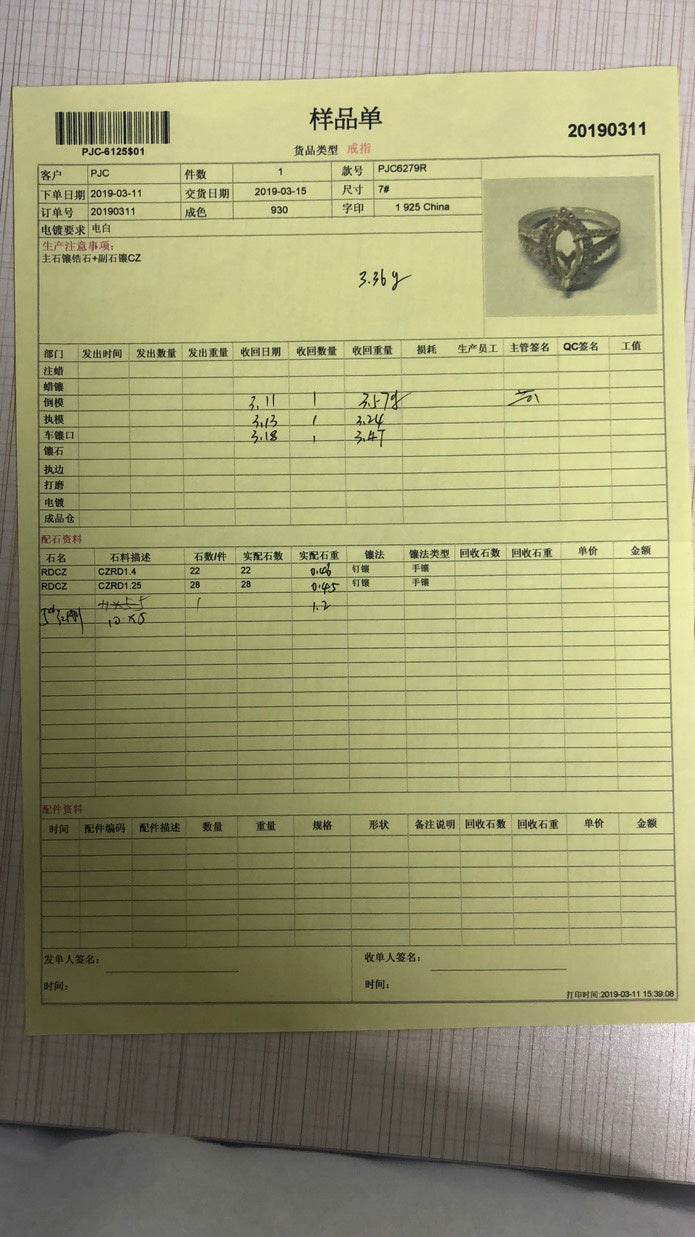 样品单
20190311
PJC-6125$01
货品类型 戒指
客户 PJC 件数 1 款号 PJC6279R
下单日期 2019-03-11 交货日期 2019-03-15 尺寸 7#
订单号 20190311 成色 930 字印 1 925 China
电镀要求 电白
生产注意事项:
主石镶锆石+副石镶CZ
3.36g
部门 发出时间 发出数量 发出重量 收回日期 收回数量 收回重量 损耗 生产员工 主管签名 QC签名 工值
注蜡
蜡镶
倒模 3.11 1 3.57g
执模 3.13 1 3.24
车镶口 3.18 1 3.47
镶石
执边
打磨
电镀
成品仓
配石资料
石名 石料描述 石数/件 实配石数 实配石重 镶法 镶法类型 回收石数 回收石重 单价 金额
RDCZ CZRD1.4 22 22 0.46 钉镶 手镶
RDCZ CZRD1.25 28 28 0.45 钉镶 手镶
1 1.2
10×5
配件资料
时间 配件编码 配件描述 数量 重量 规格 形状 备注说明 回收石数 回收石重 单价 金额
发单人签名: 收单人签名:
时间: 时间:
打印时间:2019-03-11 15:39:08